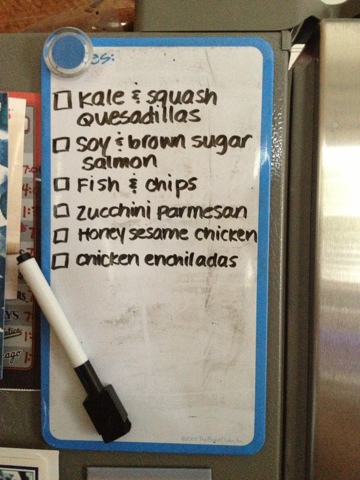 es:
Kale & squash
Quesadillas
Soy & brown sugar
salmon
Fish & chips
Zucchini parmesan
Honey sesame chicken
chicken enchiladas